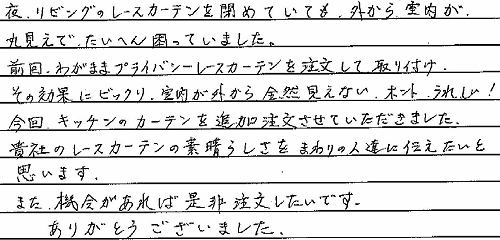 夜、リビングのレースカーテンを閉めていても、外から室内が、
丸見えで、たいへん困っていました。
前回、わがままプライバシーレースカーテンを注文して取り付け、
その効果にビックリ、室内が外から全然見えない、ホント、うれしい!
今回、キッチンのカーテンを追加注文させていただきました。
貴社のレースカーテンの素晴らしさをまわりの人達に伝えたいと
思います。
また、機会があれば是非注文したいです。
ありがとうございました。